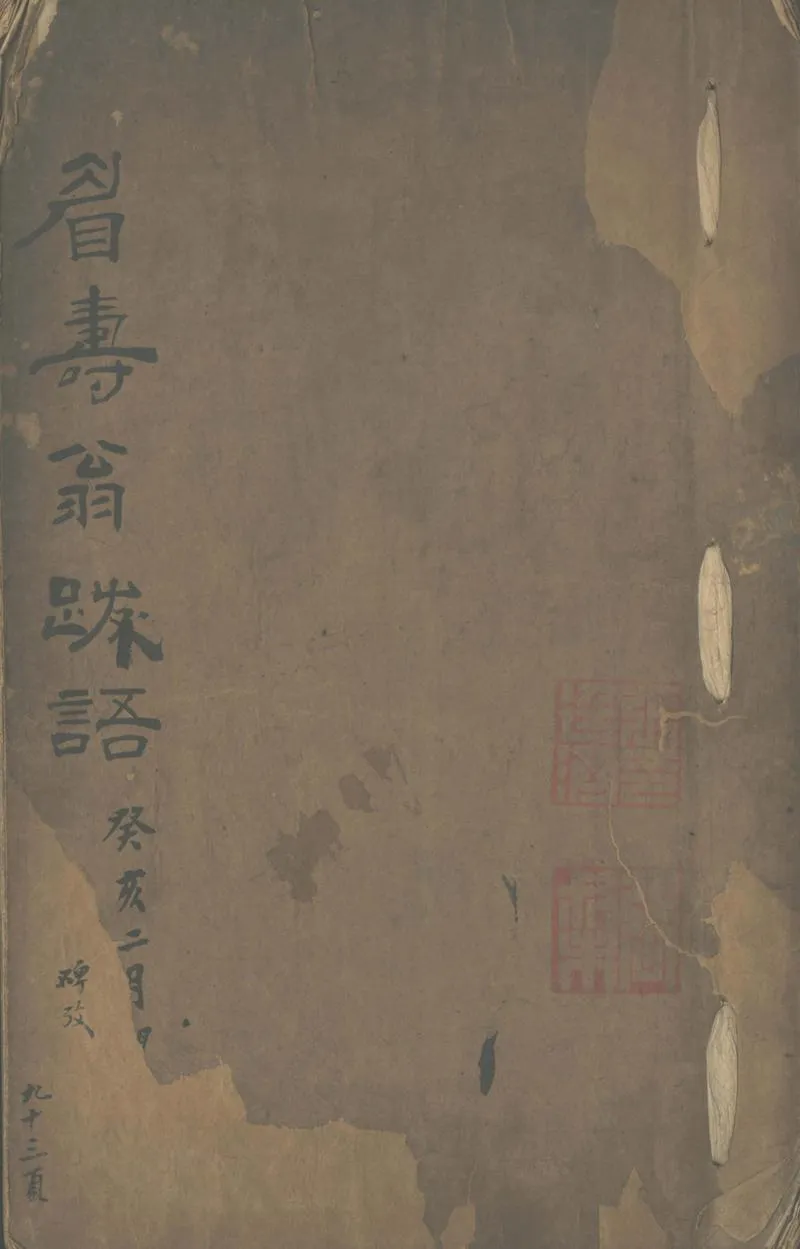 眉壽翁䟽語
癸亥二月
碑攷
九十三頁